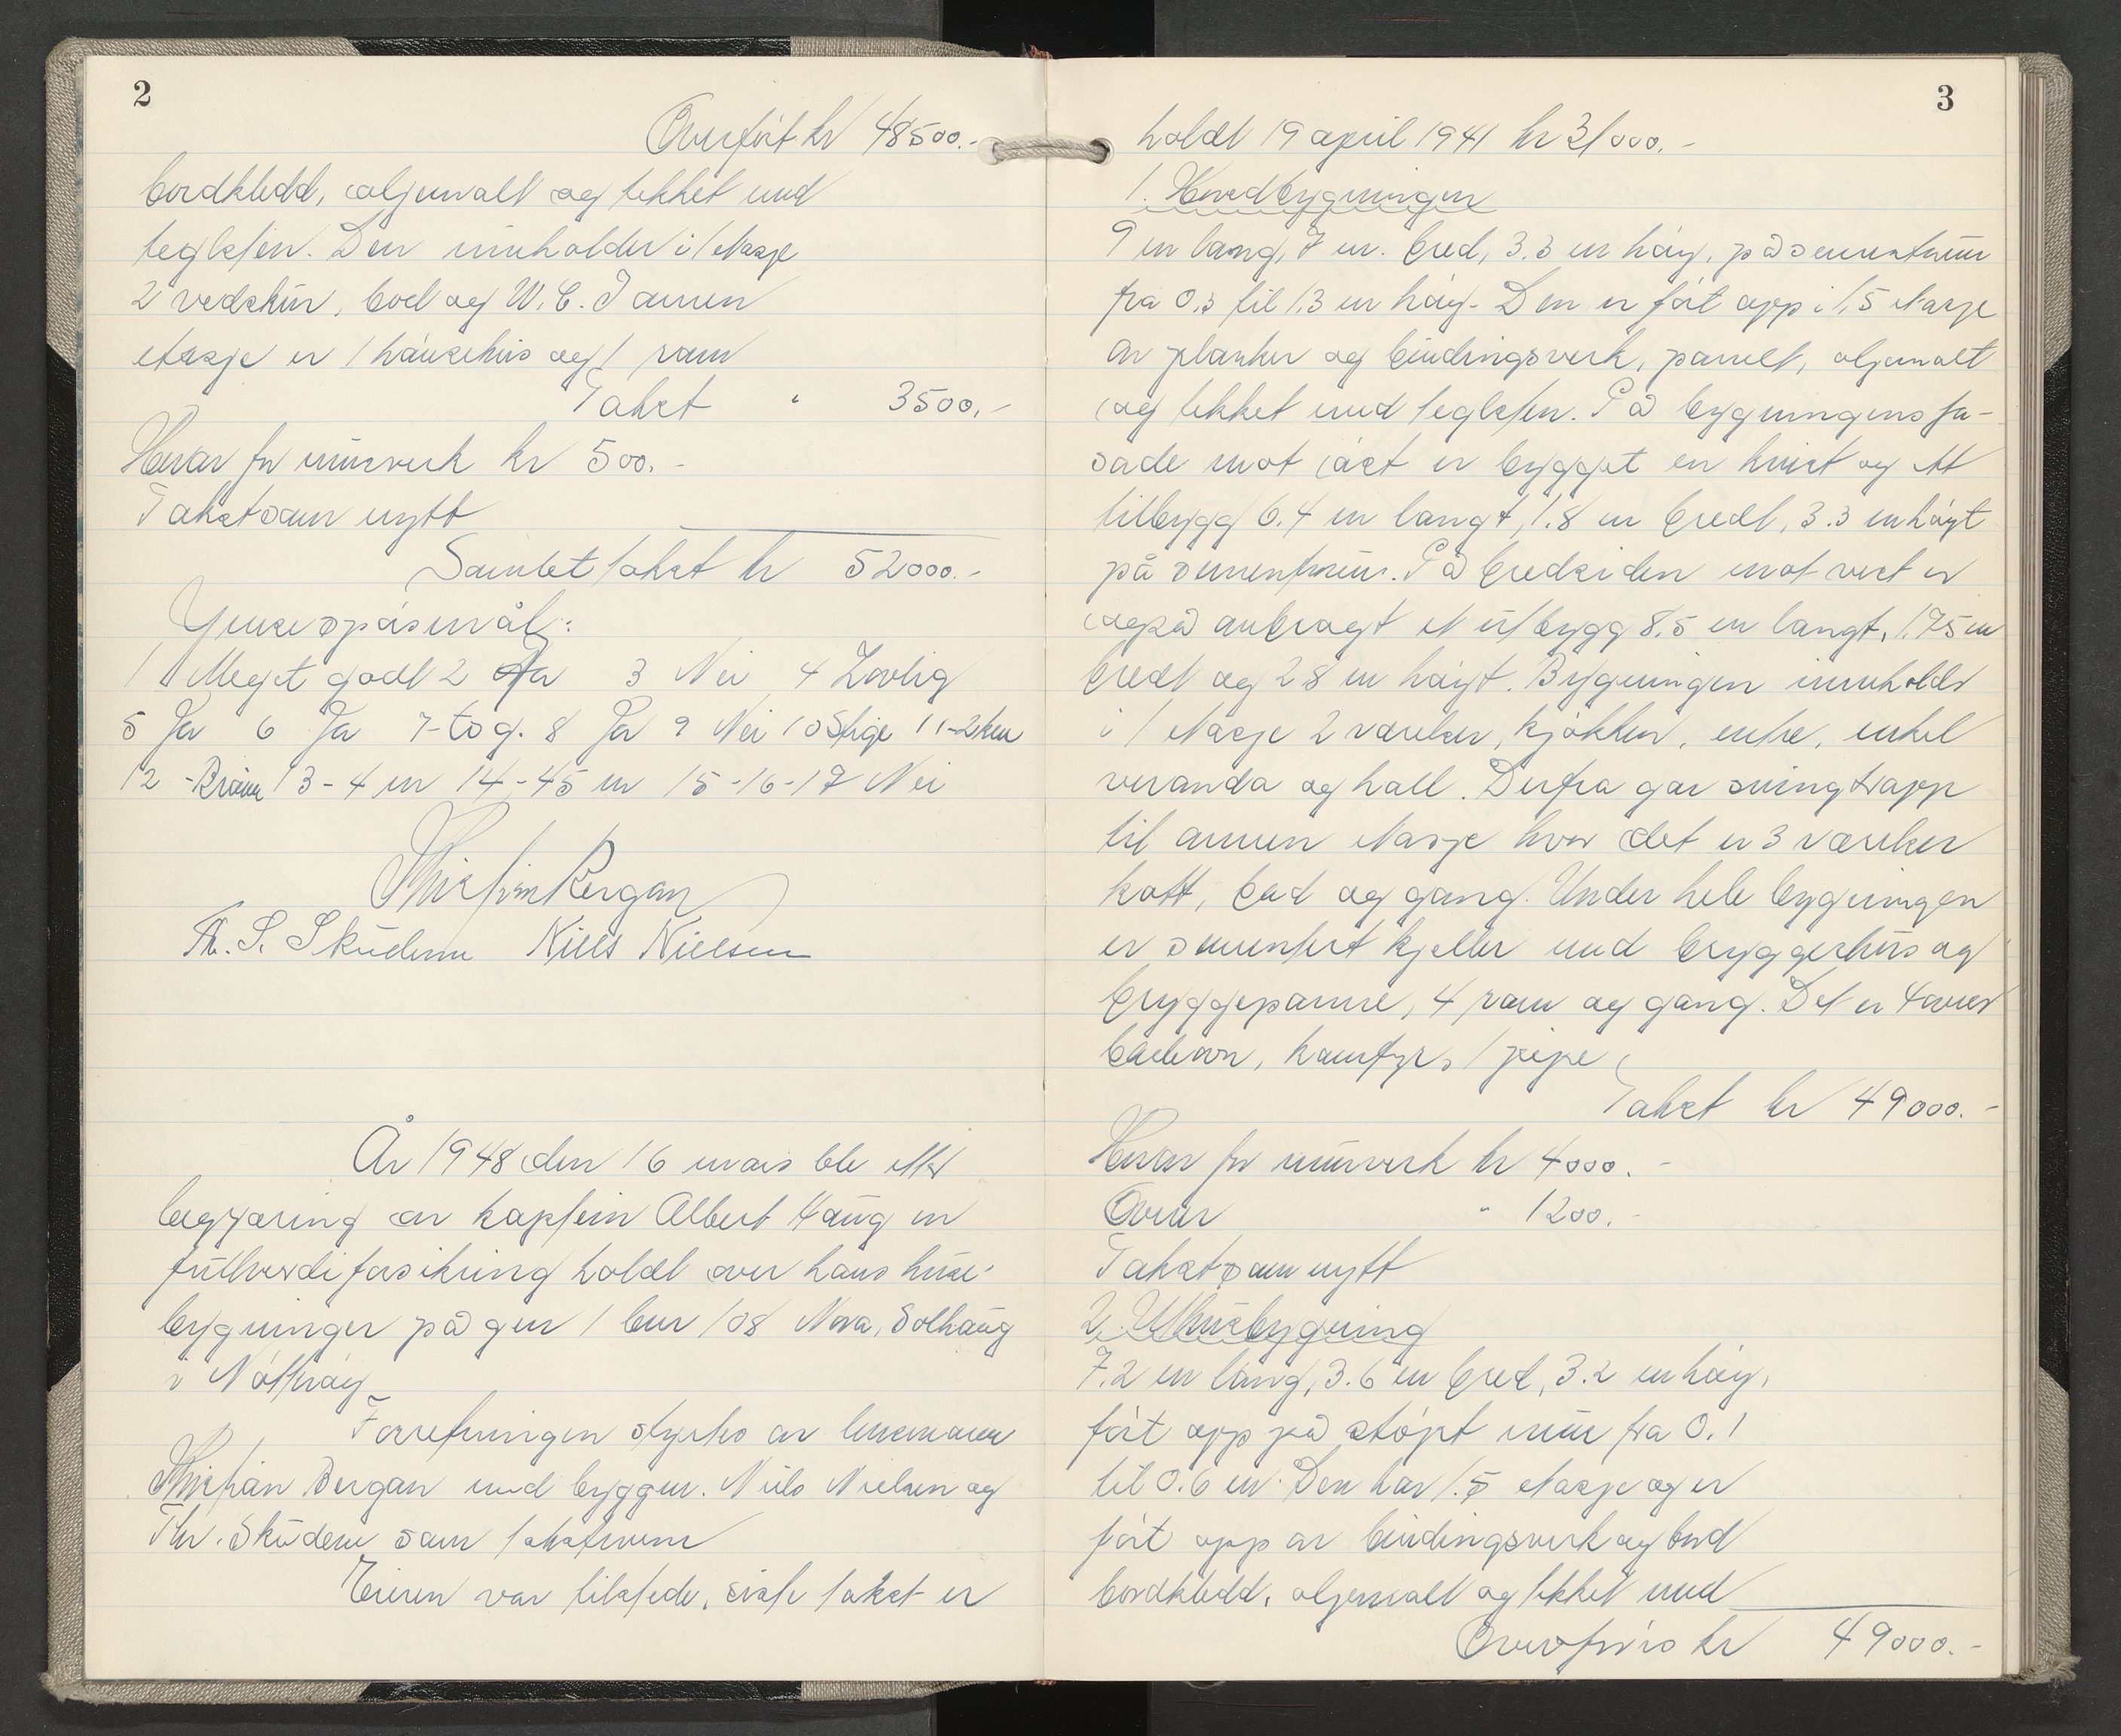 2
Overført kr 48500.-
bordkledd, oljemalt og tekket med
teglsten. Den inneholder i 1 etasje
2 vedskur, bod og W.C. I annen
etasje er 1 hønsehus og 1 rom
Takst " 3500.-
Herav for murverk kr 500.-
Takst som nytt
Samlet takst kr 52000.-
Yngre spørsmål:
1 Meget godt 2 Ja 3 Nei 4 Lovlig
5 Ja 6 Ja 7- to g. 8 Ja 9 Nei 10 Stige 11-2 km
12 -Brønn 13-4 m 14-45 m 15-16-17 Nei
Thv. S. Skudem Niels Nielsen
År 1948 den 16 mars ble etter
begjæring av kaptein Albert Haug en
fullverdiforsikring holdt over hans huse-
bygninger på gnr 1 bnr 108 Nova, Solhaug
i Nøtterøy
Forretningen styrtes av lensmann
Kristian Bergan med byggm. Niels Nielsen og
Thv. Skudem som takstmenn
Eieren var tilstede, siste takst er
3
holdt 19 april 1941 kr 31000.-
1. Hovedbygningen
9 m lang, 7 m. bred, 3.3 m høy, på sementmur
fra 0.3 til 1.3 m høy. Den er ført opp i 1,5 etasje
av planker og bindingsverk, panelt, oljemalt
og tekket med teglsten. På bygningens fa-
sade mot øst er bygget en kvist og ett
tilbygg 6.4 m langt, 1.8 m bredt, 3.3 m høyt
på sementmur. På bredsiden mot vest er
også anbragt et utbygg 8.5 m langt, 1.75 m
bredt og 2 8 m høyt. Bygningen inneholder
i 1 etasje 2 værelser, kjøkken, entre, enkel
veranda og hall. Derfra går svingtrapp
til annen etasje hvor det er 3 værelser
kott, bad og gang. Under hele bygningen
er sementert kjeller med bryggerhus og
bryggepanne, 4 rom og gang. Det er 4 ovner
badeovn, komfyr, 1 pipe
Takst kr 49000.-
Herav for murverk kr 4000.-
Ovner " 1200.-
Takst som nytt
2. Uthusbygning
7.2 m lang, 3.6 m bred, 3.2 m høy,
ført opp på støpt mur fra 0.1
til 0.6 m. Den har 1.5 etasje og er
ført opp av bindingsverk og bord
bordkledd, oljemalt og tekket med
Overføres kr 49000.-